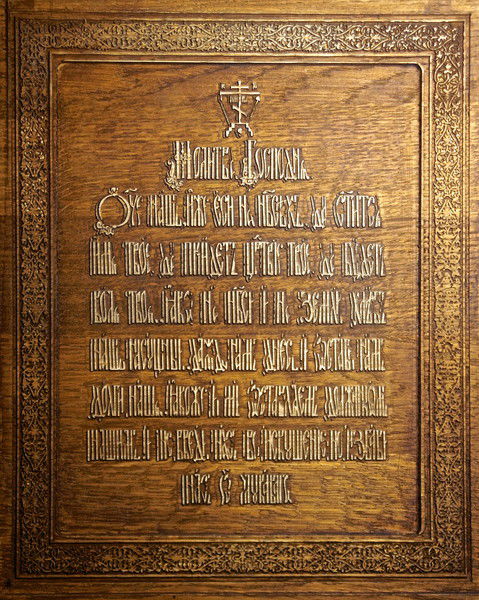 Молитва Господня
Ѻ҃че нашъ, иже еси на нб҃сѣхъ, да ст҃итсѧ
имѧ твое, да прїидетъ црⷭ҇твїе твое, да бꙋдетъ
волѧ твоѧ, ꙗкѡ на нб҃си и на земли, хлѣбъ
нашъ насꙋщный даждь намъ днесь, и ѡстави намъ
долги нашѧ, ꙗкоже и мы ѡставлѧемъ должникѡмъ
нашимъ, и не введи насъ во искꙋшенїе, но избави
насъ ѿ лꙋкавагѡ